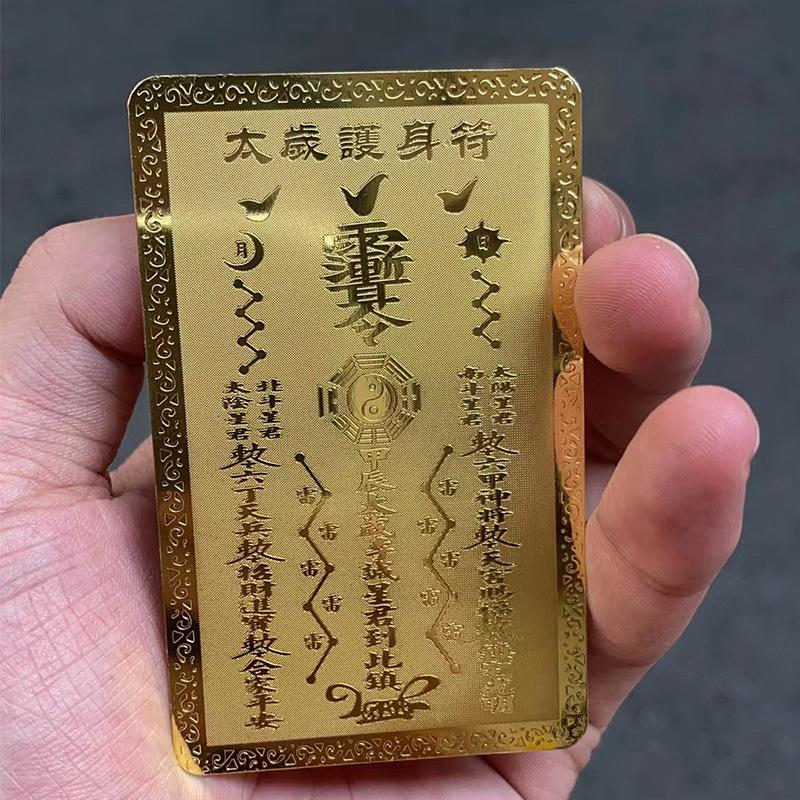 太歲護身符
日
月
太陽星君
南斗星君
敕六甲神將敕天官賜福
雷
雷
雷
雷
雷
令
甲辰太歲李誠星君到此鎮
雷
雷
雷
雷
雷
北斗星君
太陰星君
敕六丁天兵敕招財進寶敕合家平安